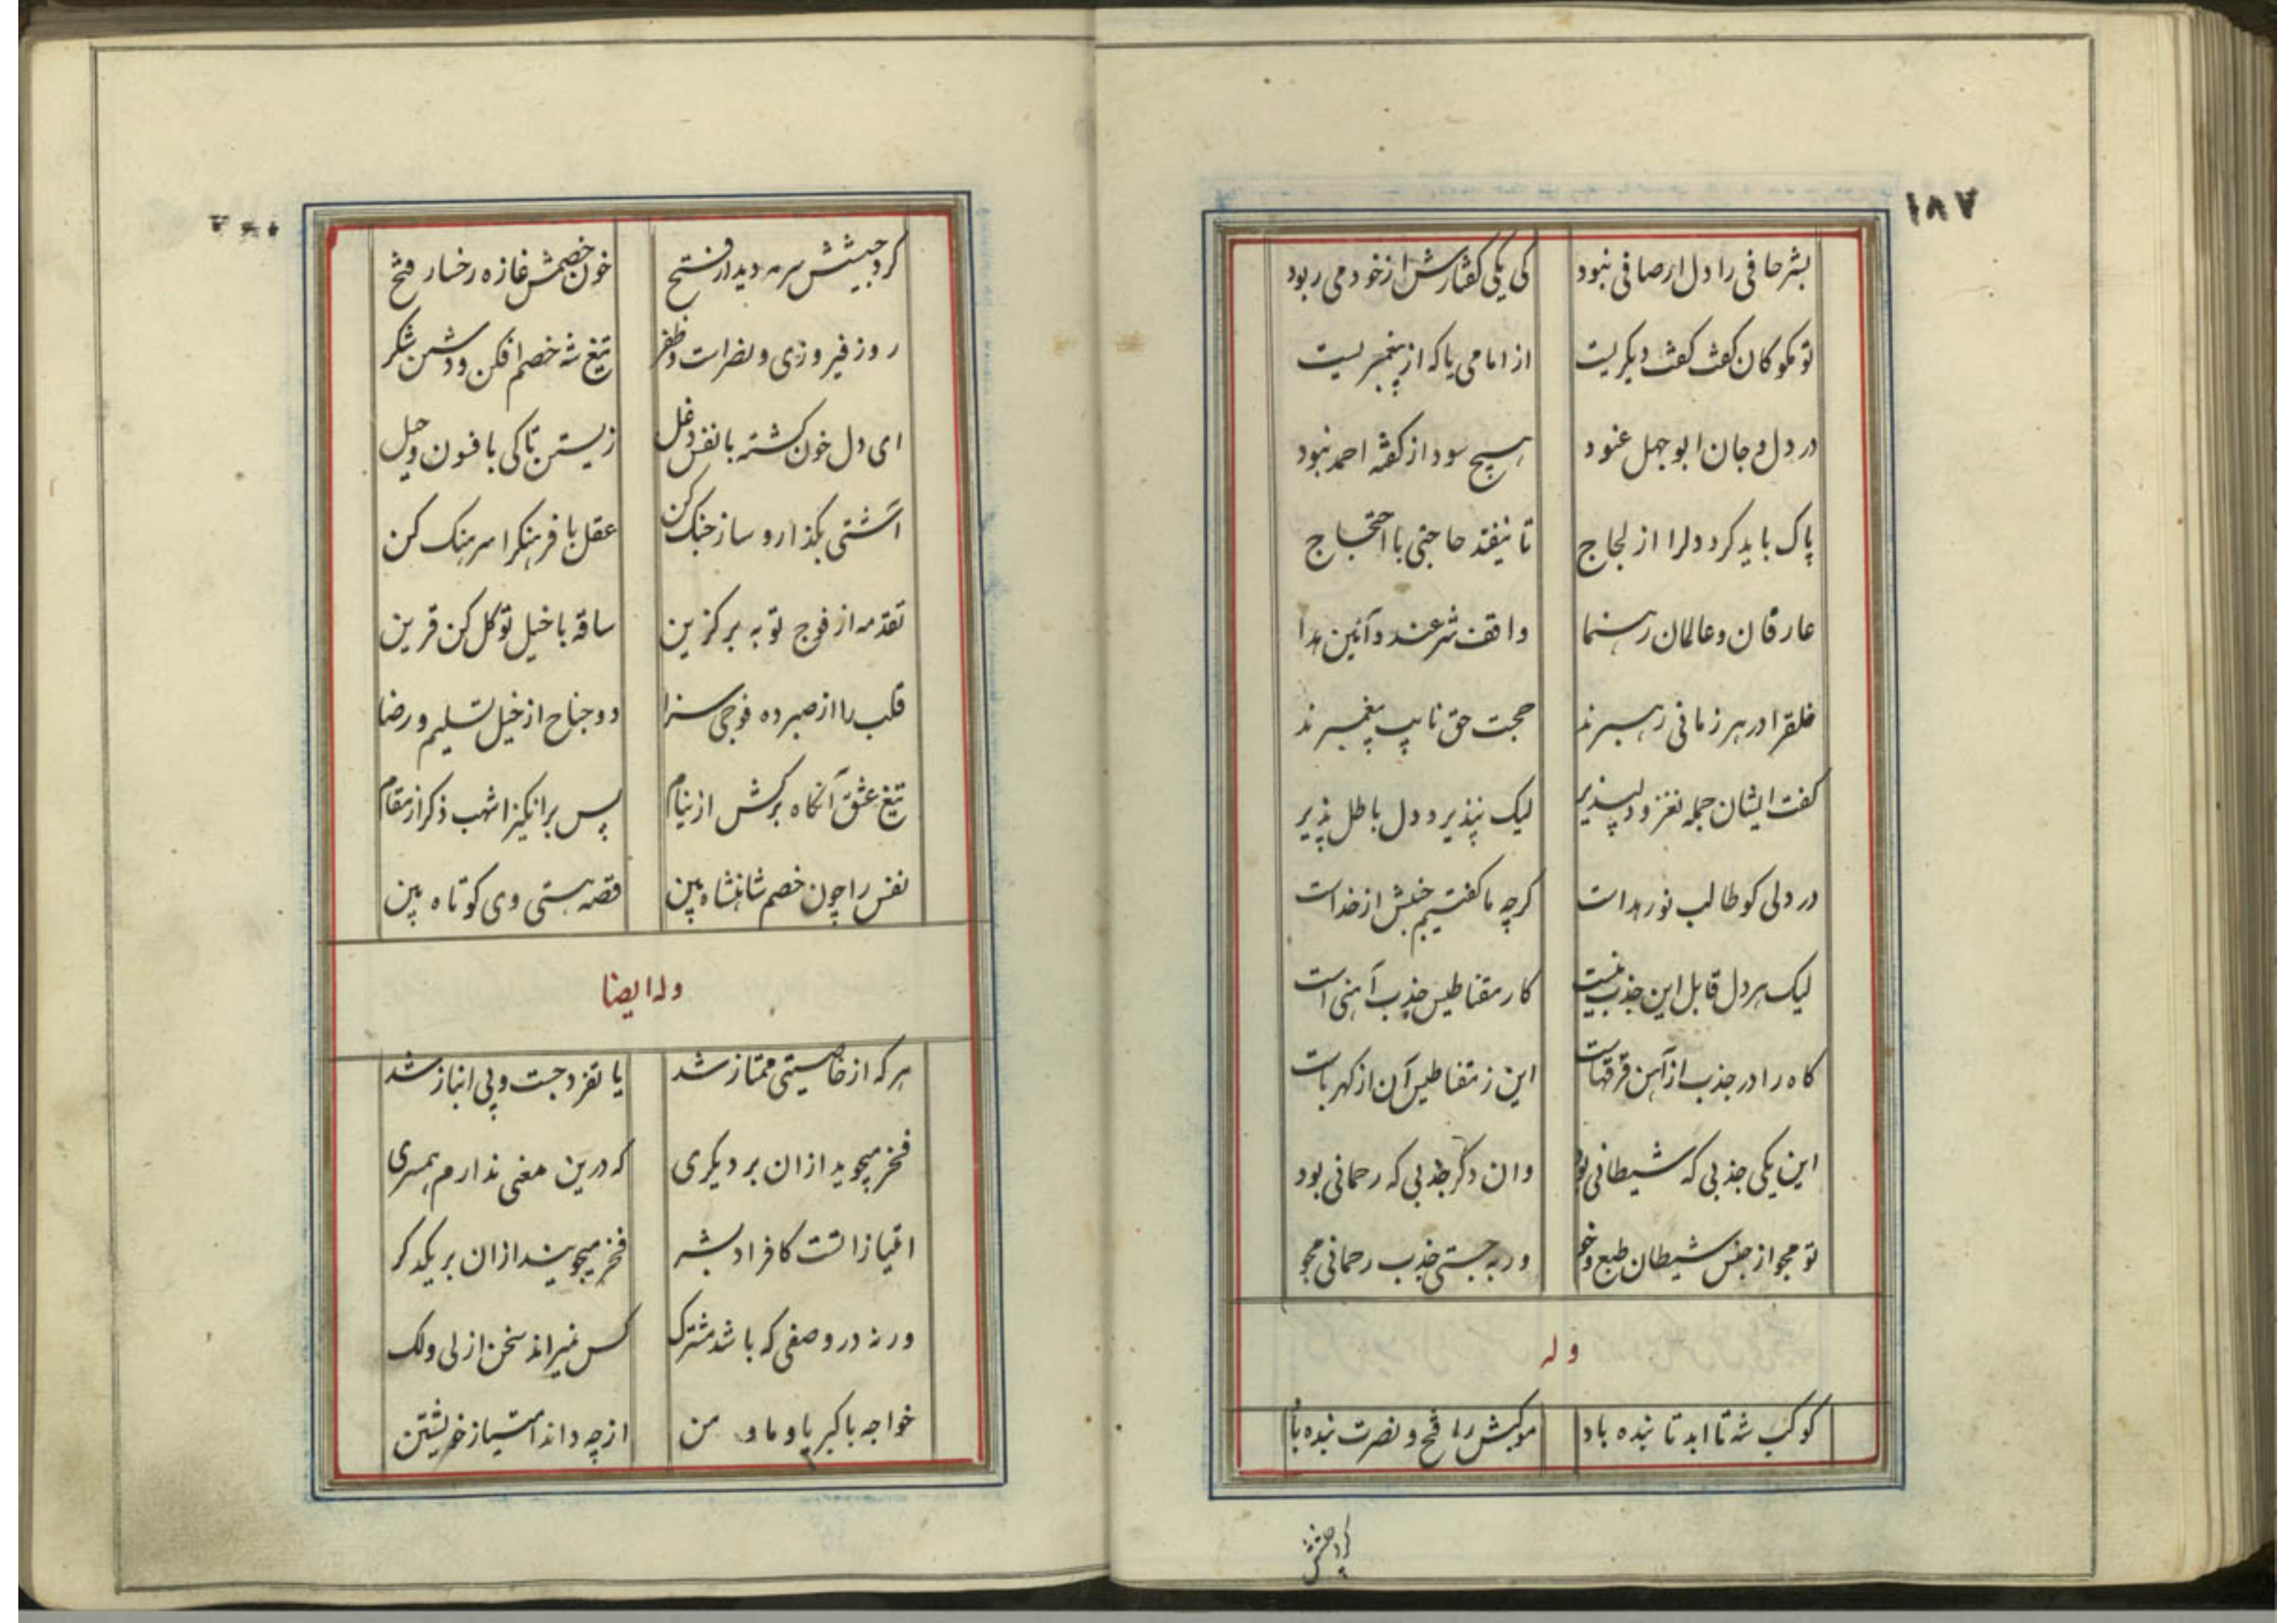 ۱۸۷
بشر حافی را دل ار صافی نبود کی یکی کفتارش از خود می ربود
تو مکو کان کفت کفت دیکریست از امامی یا که از پیغمبریست
در دل و جان ابوجهل عنود هیچ سود از کفته احمد نبود
پاک باید کرد دلرا از لجاج تا نیفتد حاجتی با احتجاج
عارفان و عالمان رهنما واقف شرعند و آئین هدا
خلقرا در هر زمانی رهبرند حجت حق نایب پیغمبرند
کفت ایشان جمله نغز و دلپذیر لیک نپذیرد دل باطل پذیر
در دلی کو طالب نور هداست کرچه ما کفتیم جنبش از خداست
لیک هر دل قابل این جذب نیست کار مقناطیس جذب آهنی است
کاه را در جذب از آهن فرقهاست این ز مقناطیس آن از کهرباست
این یکی جذبی که شیطانی بود وان دکر جذبی که رحمانی بود
تو مجو از جنس شیطان طبع و خو ور به جستی جذب رحمانی مجو
وله
کوکب شه تا ابد تابنده باد موکبش را فتح و نصرت بنده باد
کرد جیشش
کرد جیشش سرمه دیدار فتح خون خصمش غازه رخسار فتح
روز فیروزی و نصرات و ظفر تیغ شه خصم افکن و دشمن شکر
ای دل خون کشته با نفس دغل زیستن تا کی بافسون و حیل
آشتی بکذار و ساز جنک کن عقل با فرهنکرا سرهنک کن
تقدمه از فوج توبه برکزین ساقه با خیل توکل کن قرین
قلب را از صبر ده فوجی سزا دو جناح از خیل تسلیم و رضا
تیغ عشق آنکاه برکش از نیام پس برانکیز اشهب ذکر از مقام
نفس را چون خصم شاهنشاه بین قصه هستی وی کوتاه بین
وله ایضا
هر که از خاصیتی ممتاز شد یا تفرد جست و بی انباز شد
فخر میجوید ازان بر دیکری که درین معنی ندارم همسری
امتیاز انست کافراد بشر فخر میجویند ازان بر یکدکر
ورنه در وصفی که باشد مشترک کس نمیراند سخن از لی ولک
خواجه با کبر یا و ما و من از چه داند امتیاز خویشتن